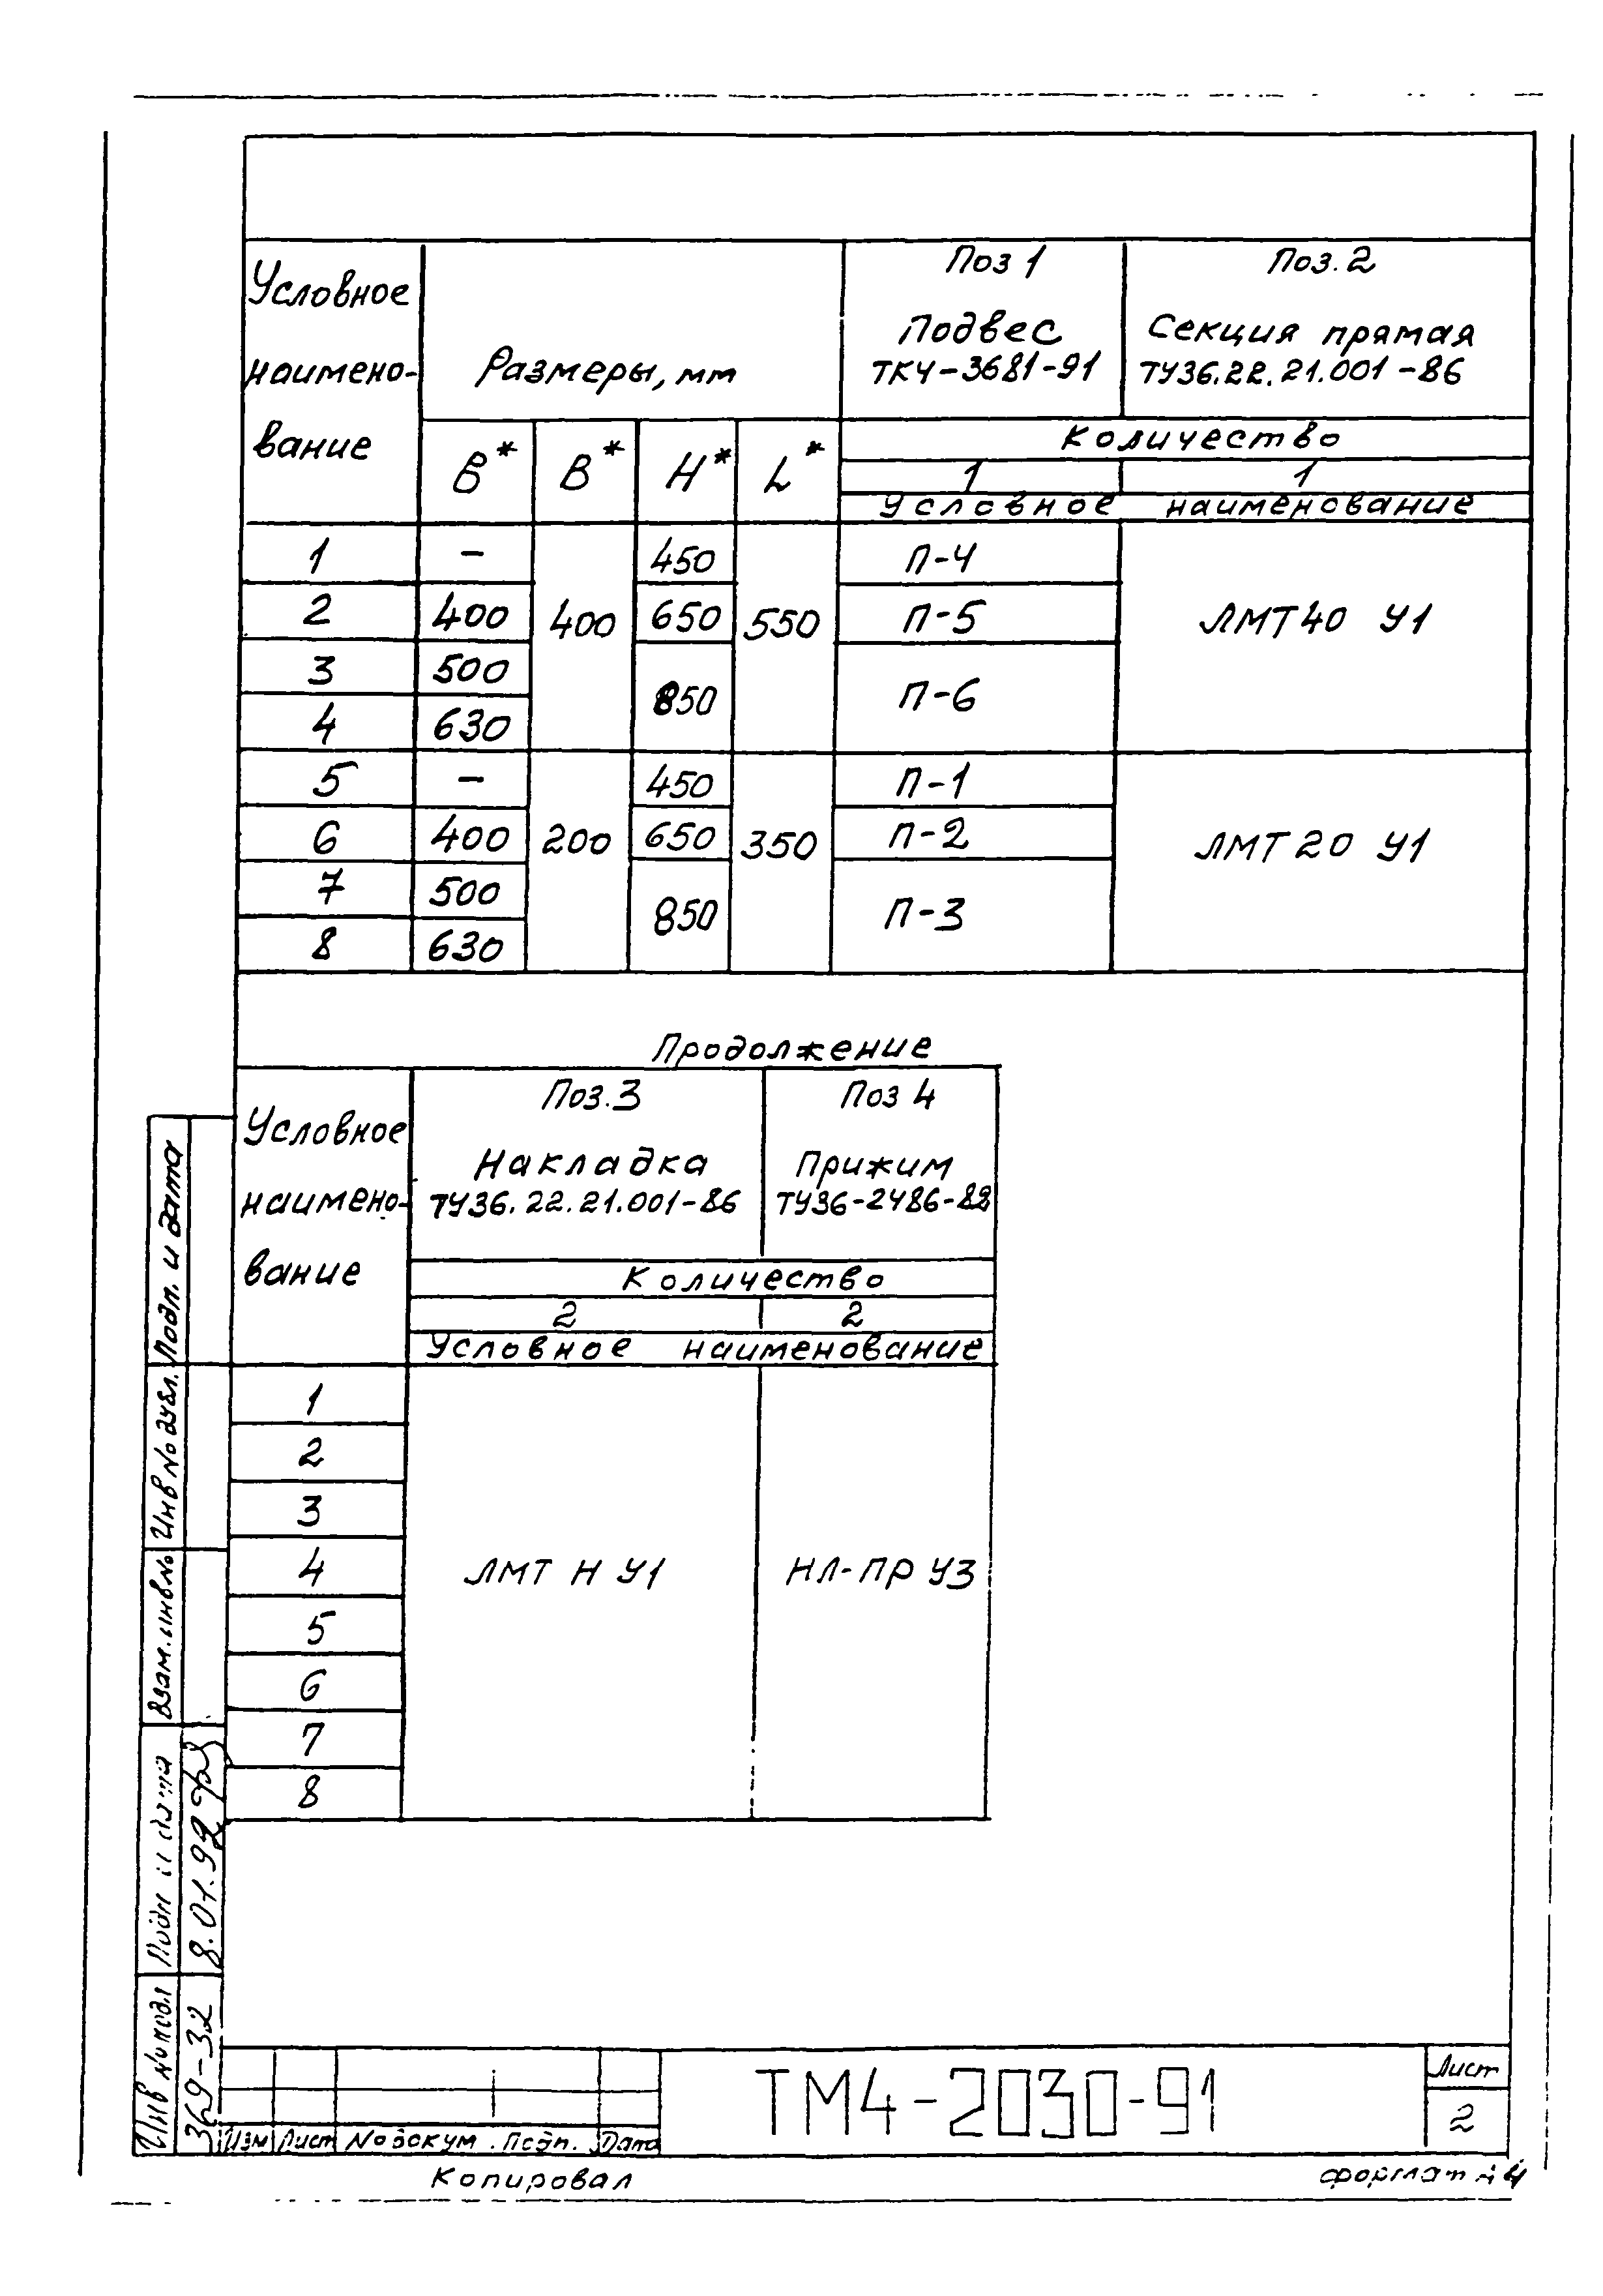 Условное
наимено-
вание
Размеры, мм
Поз 1
Подвес
ТК4-3681-91
Поз.2
Секция прямая
ТУ36.22.21.001-86
Количество
1 1
Условное наименование
В* В* Н* L*
1 - 400 450 550 П-4 ЛМТ40 У1
2 400 650 П-5
3 500 850 П-6
4 630
5 - 200 450 350 П-1 ЛМТ20 У1
6 400 650 П-2
7 500 850 П-3
8 630
Продолжение
Условное
наимено-
вание
Поз.3
Накладка
ТУ36.22.21.001-86
Поз 4
Прижим
ТУ36-2486-82
Количество
2 2
Условное наименование
1
2
3
4 ЛМТ Н У1 НЛ-ПР У3
5
6
7
8
Подп. и дата
Инв № дубл.
Взам. инв №
Подп и дата
8.01.92
Инв № подл
369-32
Изм Лист № докум. Подп. Дата
ТМ4-2030-91
Лист
2
Копировал
формат А4